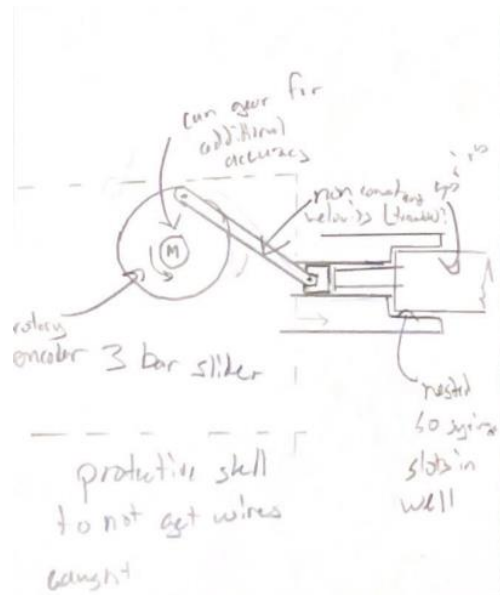 can gear for
additional
accuracy
non constant
velocity
M
rotary
encoder 3 bar slider
nested
so syringe
slots in
well
protective shell
to not get wires
caught